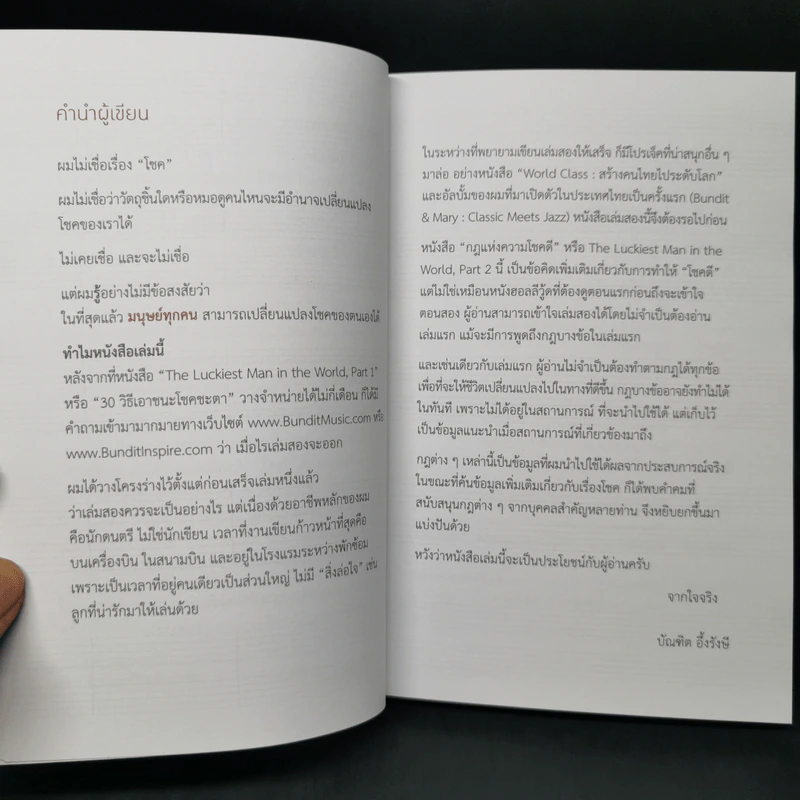 คำนำผู้เขียน
ผมไม่เชื่อเรื่อง “โชค”
ผมไม่เชื่อว่าวัตถุชิ้นใดหรือหมอดูคนไหนจะมีอำนาจเปลี่ยนแปลง
โชคของเราได้
ไม่เคยเชื่อ และจะไม่เชื่อ
แต่ผมรู้อย่างไม่มีข้อสงสัยว่า
ในที่สุดแล้ว มนุษย์ทุกคน สามารถเปลี่ยนแปลงโชคของตนเองได้
ทำไมหนังสือเล่มนี้
หลังจากที่หนังสือ “The Luckiest Man in the World, Part 1”
หรือ “30 วิธีเอาชนะโชคชะตา” วางจำหน่ายได้ไม่กี่เดือน ก็ได้มี
คำถามเข้ามามากมายทางเว็บไซต์ www.BunditMusic.com หรือ
www.BunditInspire.com ว่า เมื่อไรเล่มสองจะออก
ผมได้วางโครงร่างไว้ตั้งแต่ก่อนเสร็จเล่มหนึ่งแล้ว
ว่าเล่มสองควรจะเป็นอย่างไร แต่เนื่องด้วยอาชีพหลักของผม
คือนักดนตรี ไม่ใช่นักเขียน เวลาที่งานเขียนก้าวหน้าที่สุดคือ
บนเครื่องบิน ในสนามบิน และอยู่ในโรงแรมระหว่างพักซ้อม
เพราะเป็นเวลาที่อยู่คนเดียวเป็นส่วนใหญ่ ไม่มี “สิ่งล่อใจ” เช่น
ลูกที่น่ารักมาให้เล่นด้วย
ในระหว่างที่พยายามเขียนเล่มสองให้เสร็จ ก็มีโปรเจ็คที่น่าสนุกอื่น ๆ
มาล่อ อย่างหนังสือ “World Class : สร้างคนไทยไประดับโลก”
และอัลบั้มของผมที่มาเปิดตัวในประเทศไทยเป็นครั้งแรก (Bundit
& Mary : Classic Meets Jazz) หนังสือเล่มสองนี้จึงต้องรอไปก่อน
หนังสือ “กฎแห่งความโชคดี” หรือ The Luckiest Man in the
World, Part 2 นี้ เป็นข้อคิดเพิ่มเติมเกี่ยวกับการทำให้ “โชคดี”
แต่ไม่ใช่เหมือนหนังฮอลลีวู้ดที่ต้องดูตอนแรกก่อนถึงจะเข้าใจ
ตอนสอง ผู้อ่านสามารถเข้าใจเล่มสองได้โดยไม่จำเป็นต้องอ่าน
เล่มแรก แม้จะมีการพูดถึงกฎบางข้อในเล่มแรก
และเช่นเดียวกับเล่มแรก ผู้อ่านไม่จำเป็นต้องทำตามกฎได้ทุกข้อ
เพื่อที่จะให้ชีวิตเปลี่ยนแปลงไปในทางที่ดีขึ้น กฎบางข้ออาจยังทำไม่ได้
ในทันที เพราะไม่ได้อยู่ในสถานการณ์ ที่จะนำไปใช้ได้ แต่เก็บไว้
เป็นข้อมูลแนะนำเมื่อสถานการณ์ที่เกี่ยวข้องมาถึง
กฎต่าง ๆ เหล่านี้เป็นข้อมูลที่ผมนำไปใช้ได้ผลจากประสบการณ์จริง
ในขณะที่ค้นข้อมูลเพิ่มเติมเกี่ยวกับเรื่องโชค ก็ได้พบคำคมที่
สนับสนุนกฎต่าง ๆ จากบุคคลสำคัญหลายท่าน จึงหยิบยกขึ้นมา
แบ่งปันด้วย
หวังว่าหนังสือเล่มนี้จะเป็นประโยชน์กับผู้อ่านครับ
จากใจจริง
บัณฑิต อึ้งรังษี